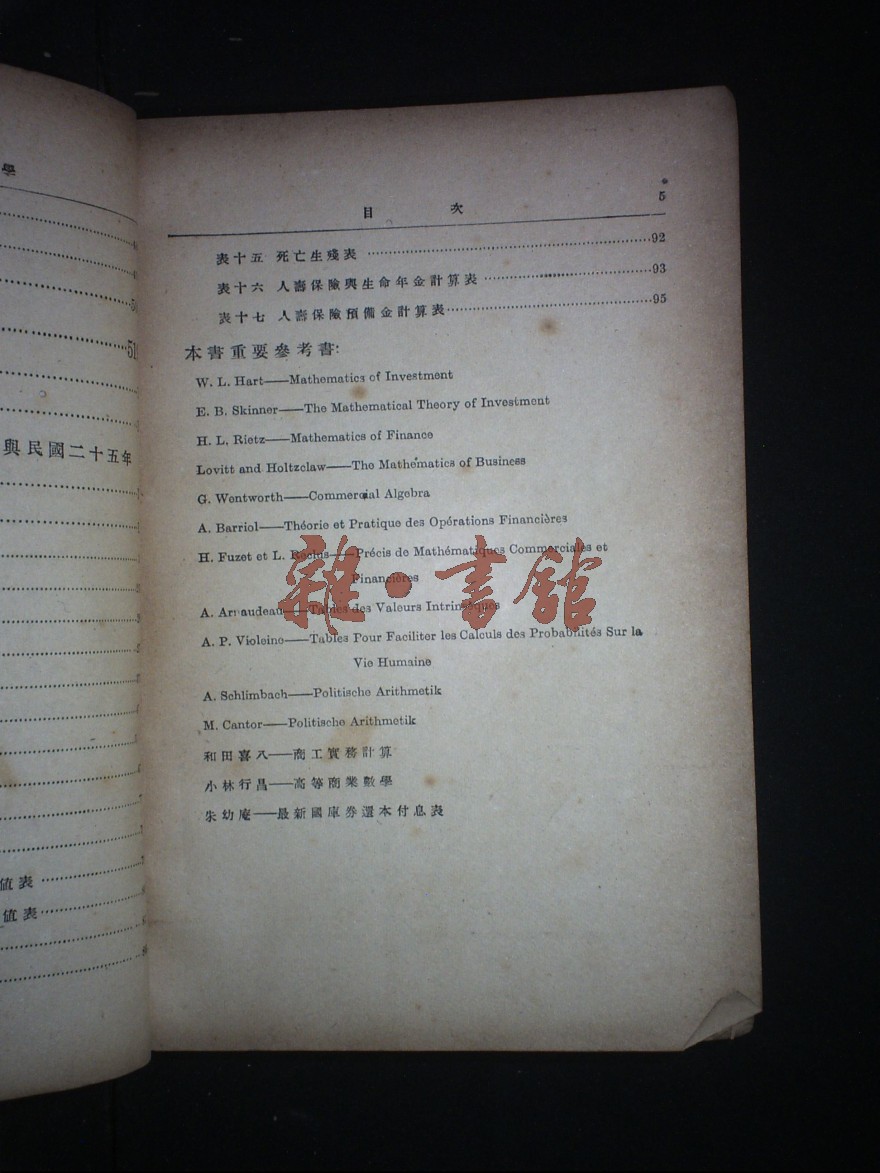 學
與民國二十五年
值表
值表
目 次 5
表十五 死亡生殘表 92
表十六 人壽保險與生命年金計算表 93
表十七 人壽保險預備金計算表 95
本書重要參考書:
W. L. Hart——Mathematics of Investment
E. B. Skinner——The Mathematical Theory of Investment
H. L. Rietz——Mathematics of Finance
Lovitt and Holtzclaw——The Mathematics of Business
G. Wentworth——Commercial Algebra
A. Barriol——Théorie et Pratique des Opérations Financières
H. Fuzet et L. Reclus——Précis de Mathématiques Commerciales et
Financières
A. Arnaudeau——Tables des Valeurs Intrinsèques
A. P. Violeine——Tables Pour Faciliter les Calculs des Probabilités Sur la
Vie Humaine
A. Schlimbach——Politische Arithmetik
M. Cantor——Politische Arithmetik
和田喜八——商工實務計算
小林行昌——高等商業數學
朱幼庵——最新國庫券還本付息表
雜·書館